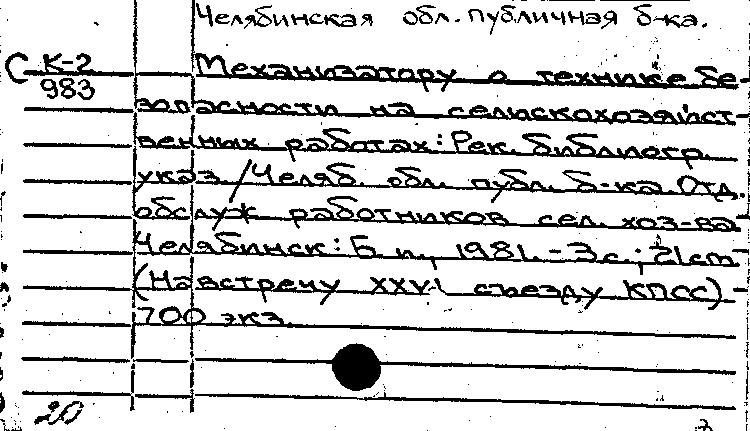 Челябинская обл. публичная б-ка.
С К-2
983
Механизатору о технике бе-
зопасности на сельскохозяйст-
венных работах: Рек. библиогр.
указ. /Челяб. обл. публ. б-ка. Отд.
обслуж работников сел. хоз-ва-
Челябинск: Б. и., 1981. - 3с.; 21см-
(Навстречу XXVI съезду КПСС) -
700 экз.
20